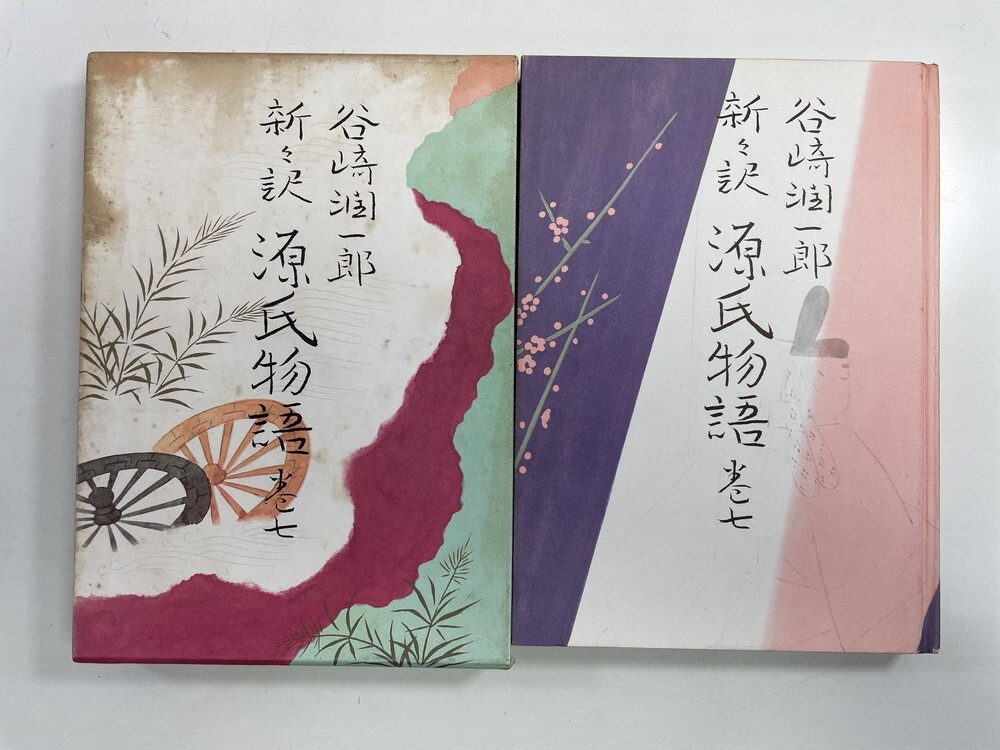 谷崎潤一郎
新々訳
源氏物語 巻七
谷崎潤一郎
新々訳
源氏物語 巻七